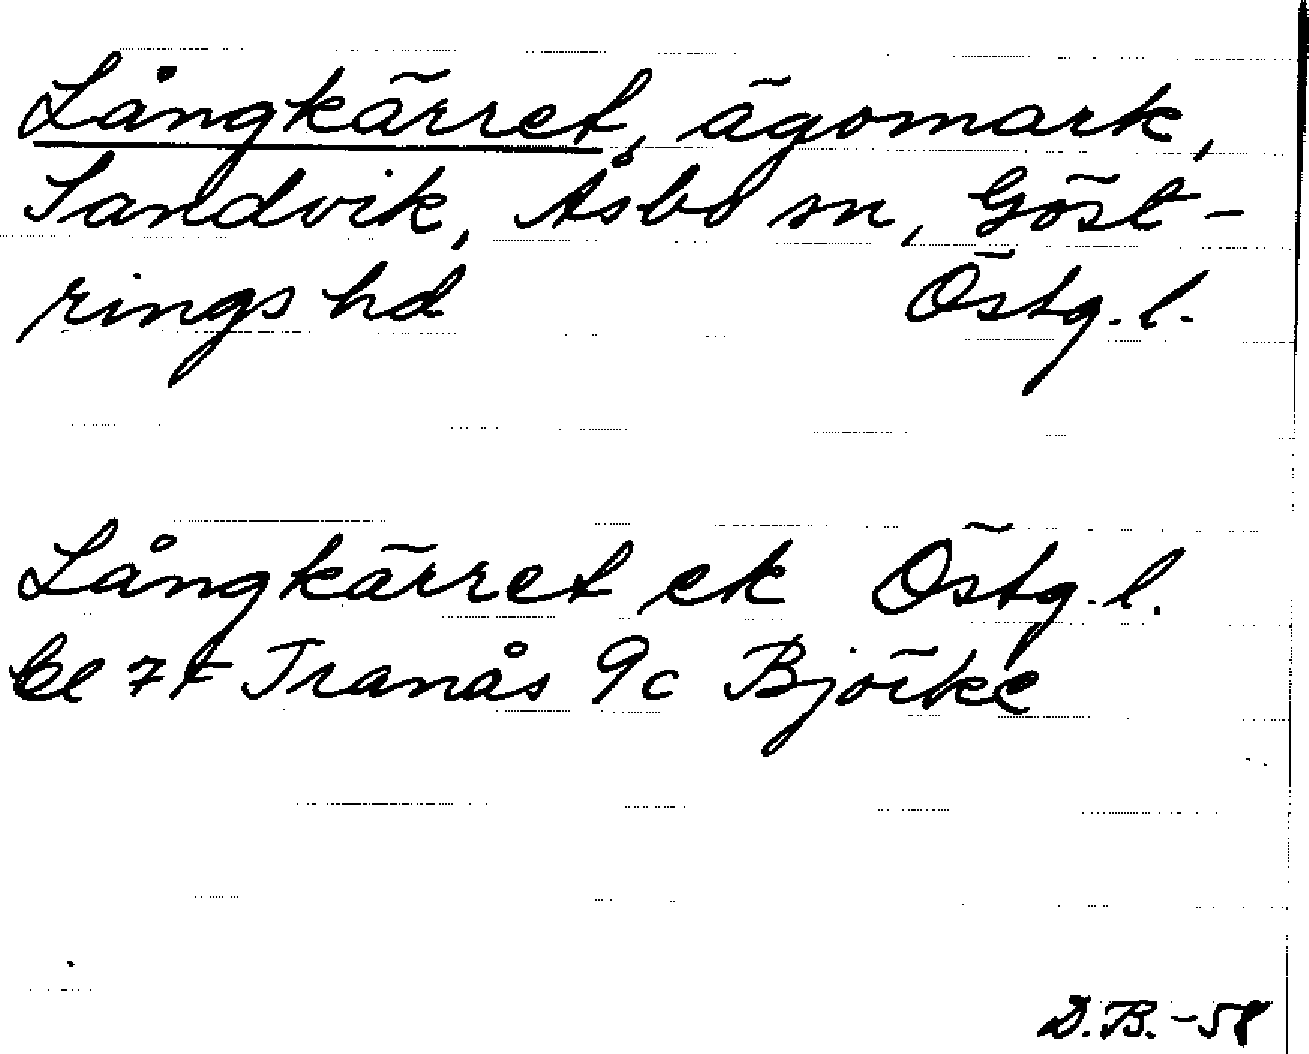 Långkärret, ägomark,
Sandvik, Åsbo sn, Göst-
rings hd Östg. l.
Långkärret ek Östg. l.
bl 7F Tranås 9c Björke
D.B. -58